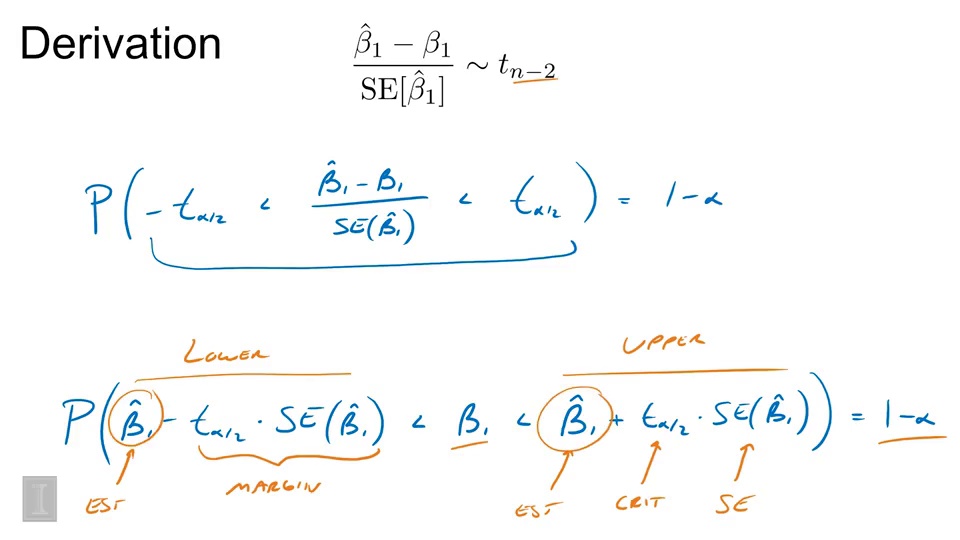 Derivation
(β̂₁ − β₁) / SE[β̂₁] ∼ tₙ₋₂
P(−t_α/2 < (β̂₁ − β₁) / SE(β̂₁) < t_α/2) = 1−α
LOWER UPPER
P(β̂₁ − t_α/2 · SE(β̂₁) < β₁ < β̂₁ + t_α/2 · SE(β̂₁)) = 1−α
EST MARGIN EST CRIT SE
I